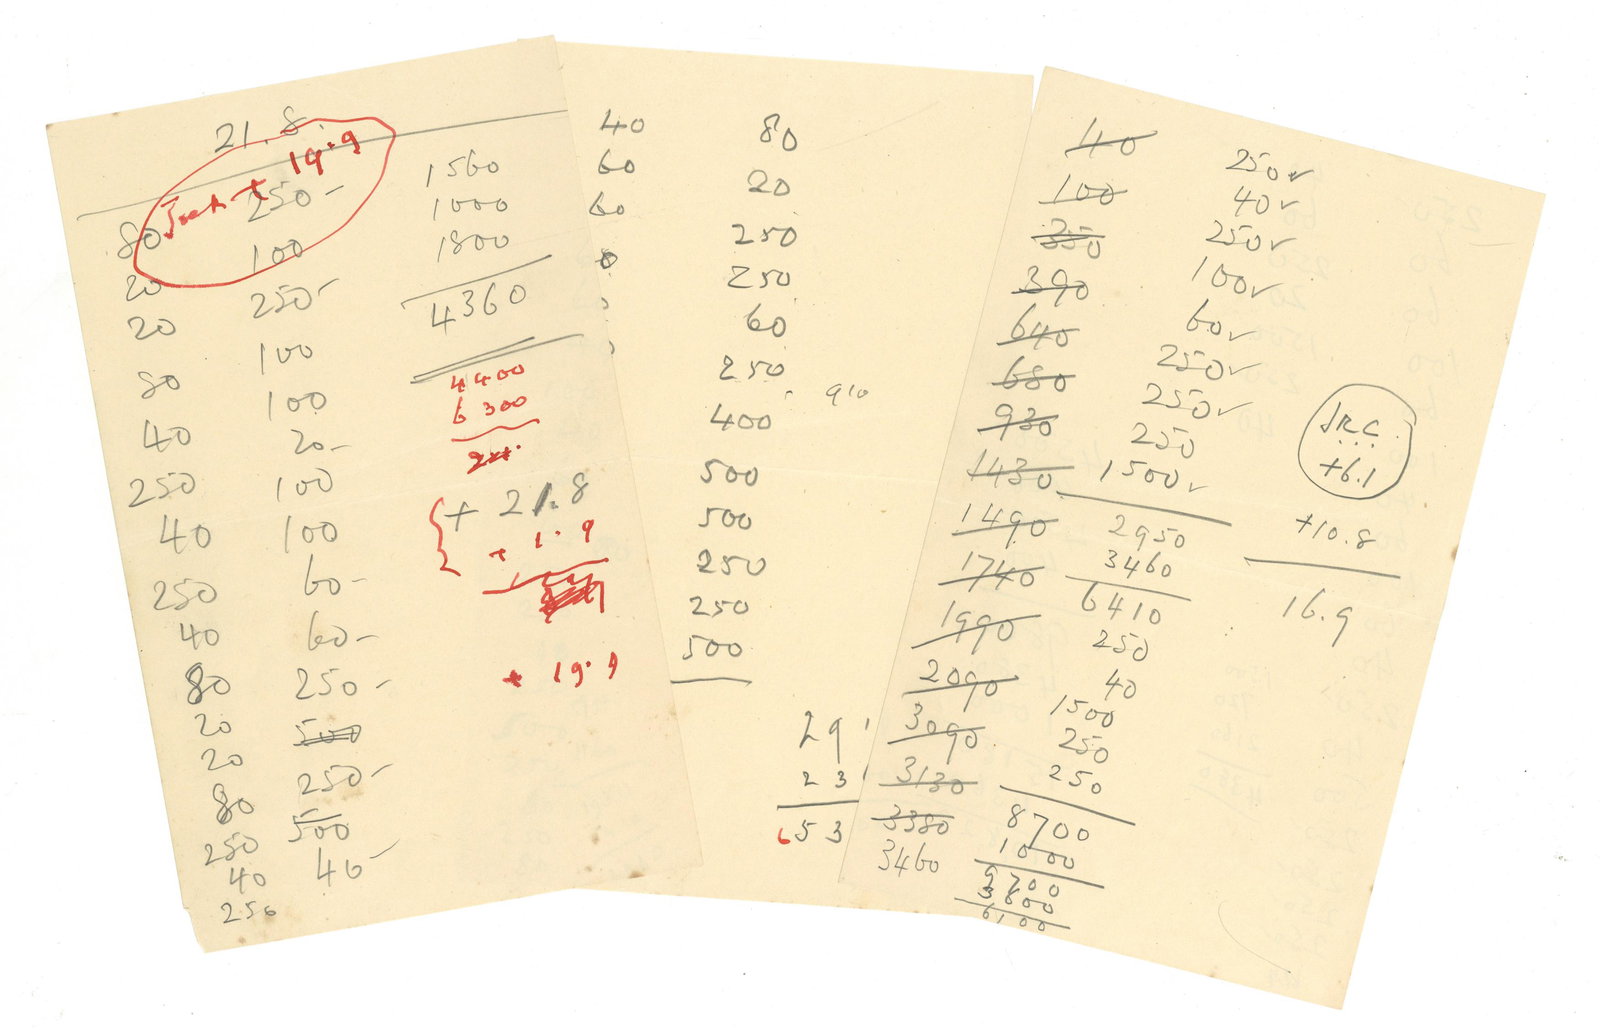 21.8
19.9
80 250- 1560
20 100 1000
20 250- 1800
80 100 4360
40 100 4400
250 20- 6300
40 100
250 100 + 21.8
40 60- + 1.9
80 60-
20 250- + 19.9
20 500
80 250-
250 500
40 40-
250
40 80
60 20
60 250
250
60
250
400 910
500
500
250
250
500
29
23
653
40 250✓
100 40✓
350 250✓
390 100✓
640 60✓
680 250✓
930 250✓
1430 250
1490 1500✓
1740 2950
1990 3460
2090 6410
3090 250
3130 40
3380 1500
3460 250
250
8700
1000
9700
3600
6100
J.R.C.
+6.1
+10.8
16.9